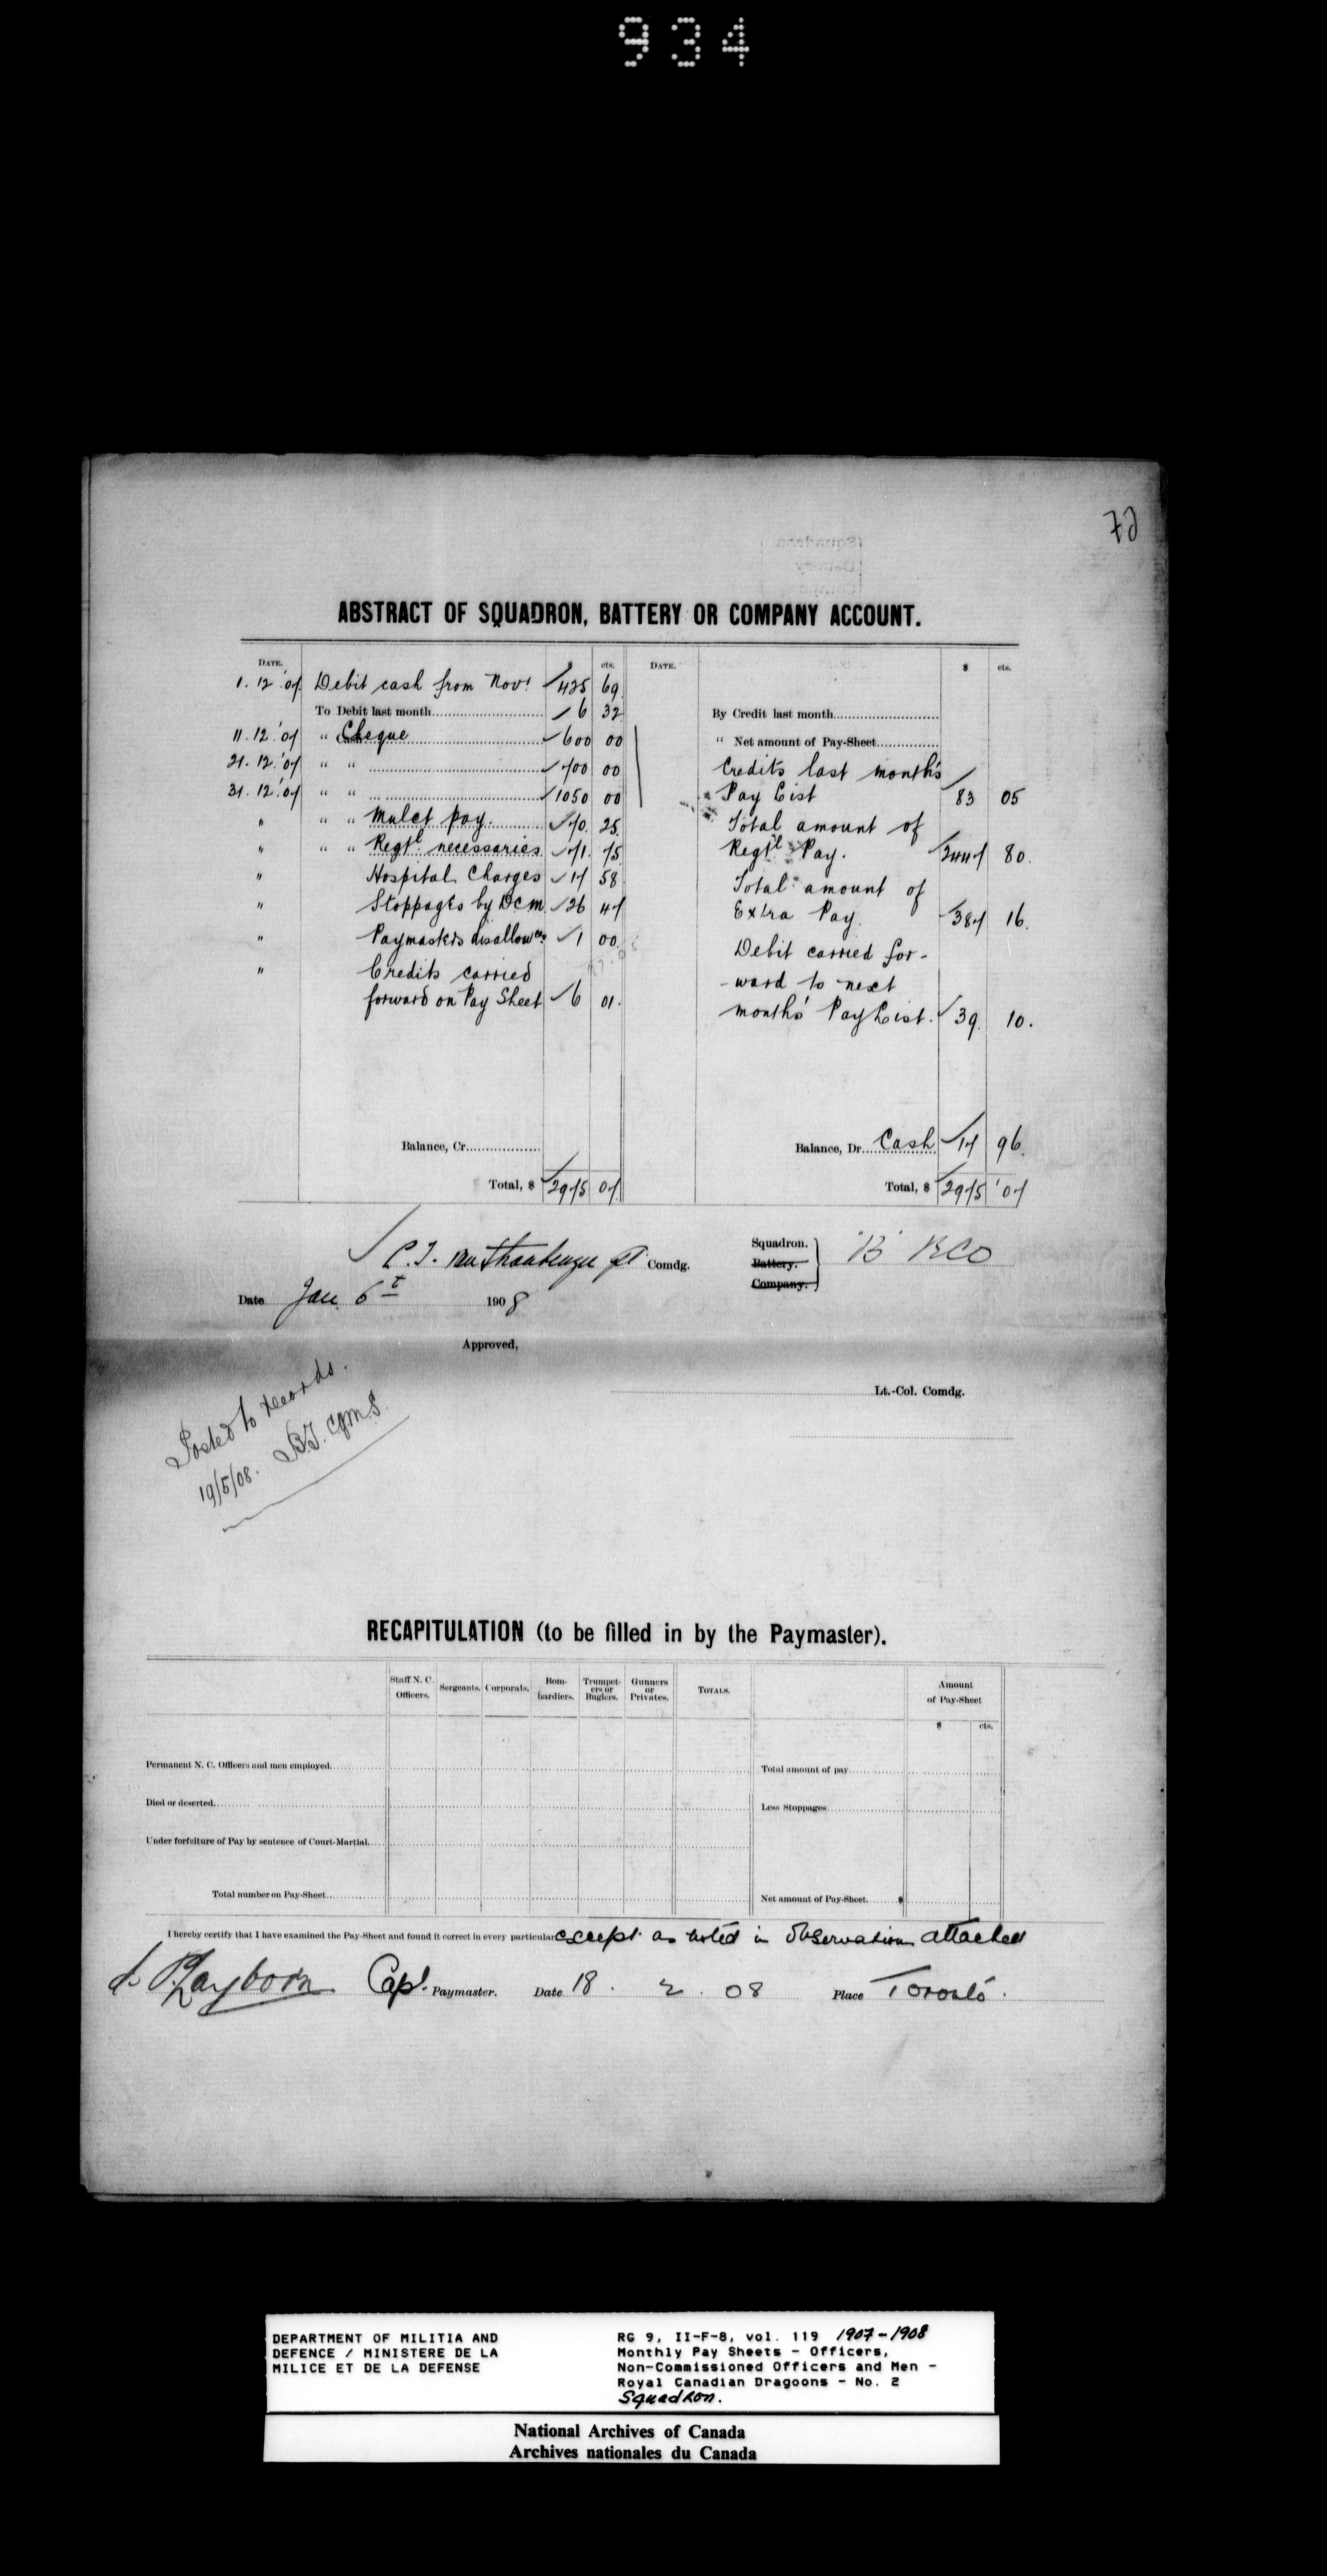 934
72
ABSTRACT OF SQUADRON, BATTERY OR COMPANY ACCOUNT.
DATE. $ cts. DATE. $ cts.
1. 12 '07 Debit cash from Nov! 425 69
To Debit last month 6 32
By Credit last month
11. 12 '07 " Cash Cheque 600 00
" Net amount of Pay-Sheet
21. 12 '07 " " 700 00
Credits last month's
31. 12 '07 " " 1050 00
Pay List 83 05
" " " Mulct pay. 70. 25.
Total amount of
" " " Regtl necessaries 71. 75
Regtl Pay. 2447 80.
" Hospital Charges 17 58
Total amount of
" Stoppages by DCM 26 47
Extra Pay. 387 16.
" Paymaster's disallowces 1 00.
Debit carried for-
" Credits carried
-ward to next
forward on Pay Sheet 6 01.
months' Pay List. 39. 10.
Balance, Cr.
Balance, Dr. Cash 17 96.
Total, $ 2975 07
Total, $ 2975 07
Comdg.
Squadron.
Battery.
Company.
"B" RCD
Date Jan 6t 1908
Approved,
Lt.-Col. Comdg.
Posted to records.
19/5/08.
RECAPITULATION (to be filled in by the Paymaster).
Staff N. C. Officers. Sergeants. Corporals. Bom-bardiers. Trumpet-ers or Buglers. Gunners or Privates. TOTALS. Amount of Pay-Sheet
$ cts.
Permanent N. C. Officers and men employed
Total amount of pay
Died or deserted
Less Stoppages
Under forfeiture of Pay by sentence of Court-Martial
Total number on Pay-Sheet
Net amount of Pay-Sheet $
I hereby certify that I have examined the Pay-Sheet and found it correct in every particular except as noted in observations attached
Capt. Paymaster. Date 18. 2. 08 Place Toronto.
DEPARTMENT OF MILITIA AND
DEFENCE / MINISTERE DE LA
MILICE ET DE LA DEFENSE
RG 9, II-F-8, vol. 119 1907-1908
Monthly Pay Sheets - Officers,
Non-Commissioned Officers and Men -
Royal Canadian Dragoons - No. 2
Squadron.
National Archives of Canada
Archives nationales du Canada